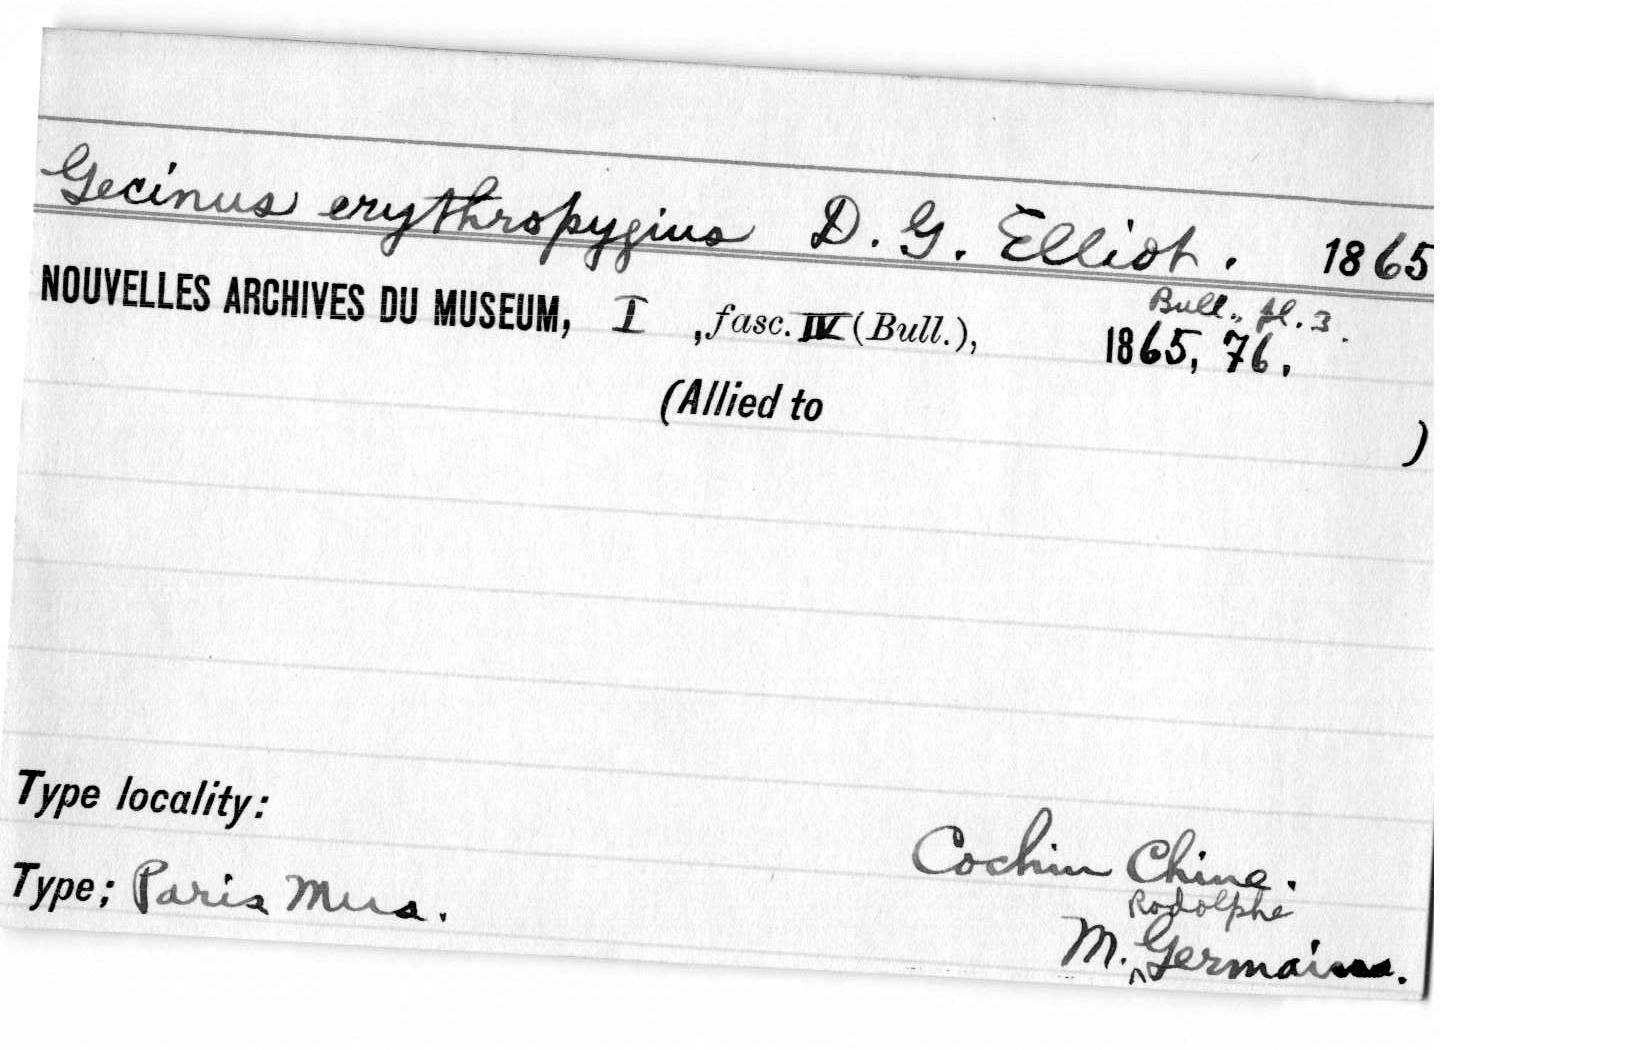 Gecinus erythropygius D. G. Elliot. 1865
Bull., pl. 3.
NOUVELLES ARCHIVES DU MUSEUM, I , fasc. IV (Bull.), 1865, 76.
(Allied to )
Type locality:
Cochin Chine.
Type; Paris Mus.
Rodolphe
M. ^ Germain.